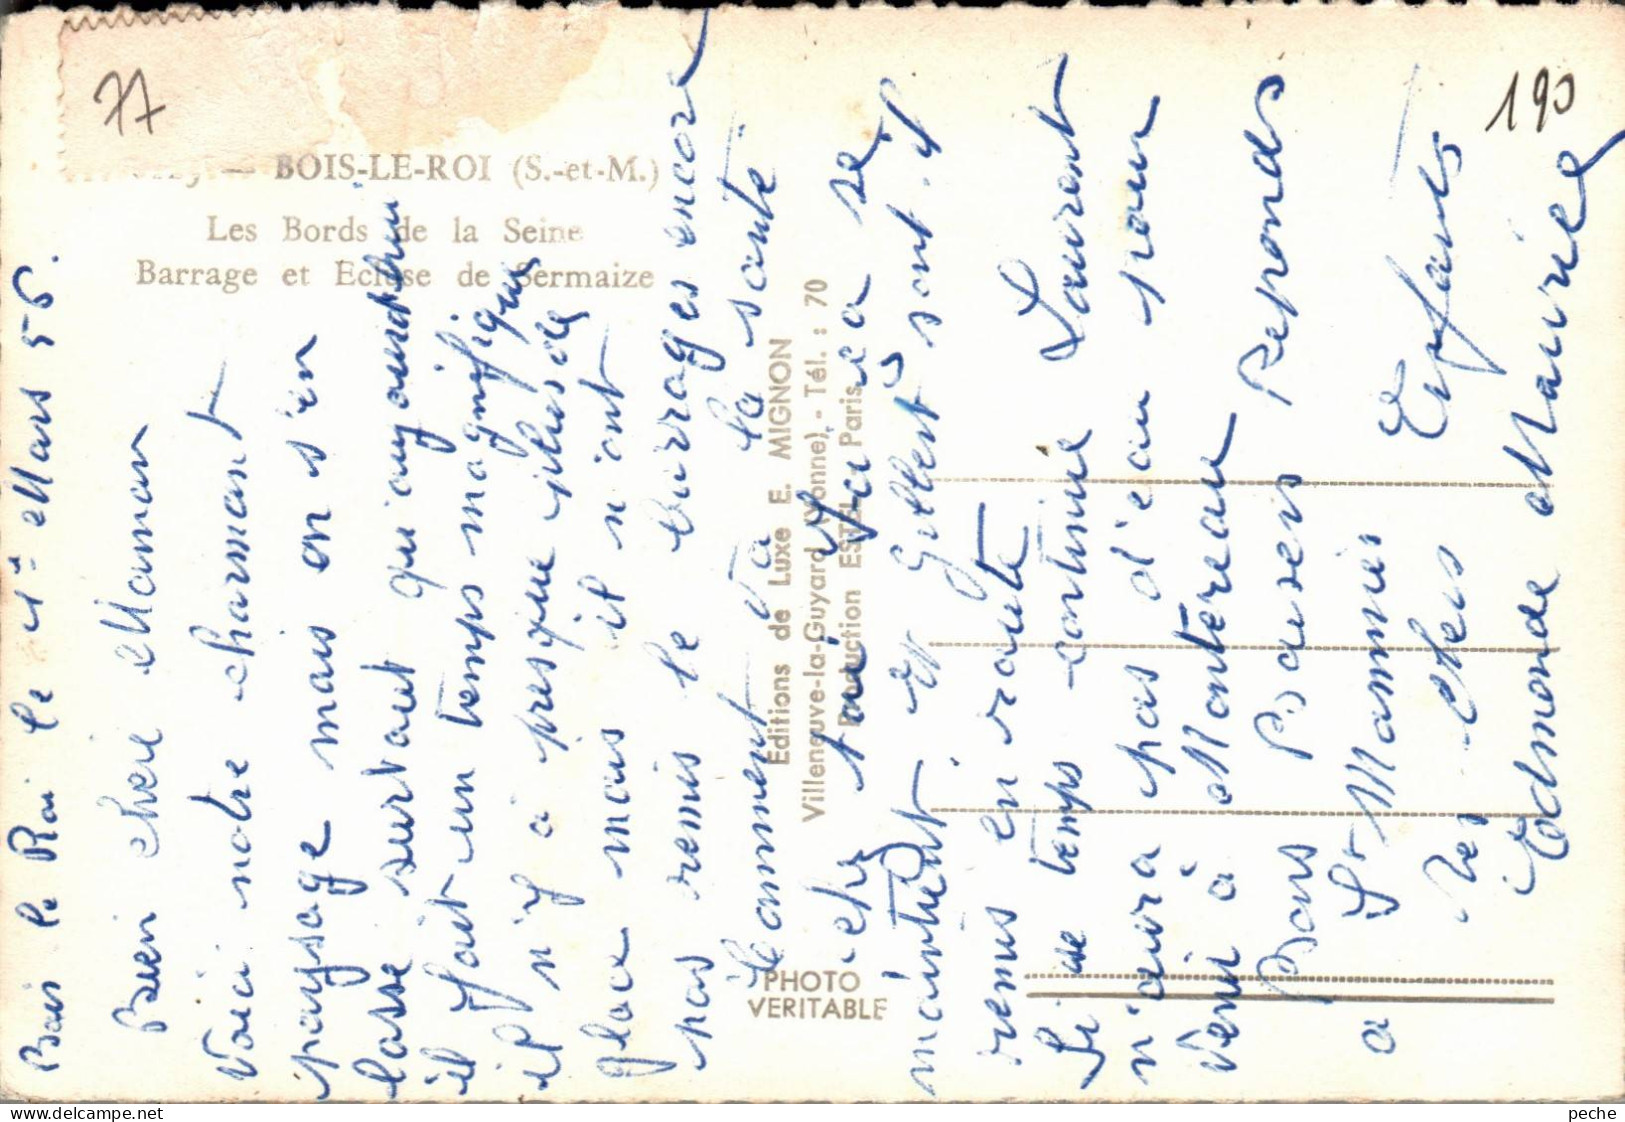 77
190
BOIS-LE-ROI (S.-et-M.)
Les Bords de la Seine
Barrage et Ecluse de Sermaize
Editions de Luxe E. MIGNON
Villeneuve-la-Guyard (Yonne) - Tél. : 70
Production ESTEL - Paris
PHOTO
VERITABLE
Bois le Roi le 1er Mars 56.
Bien chère Maman
Voici notre charmant
paysage mais on s'en
lasse surtout qu'aujourd'hui
il fait un temps magnifique
il n'y a presque plus de
glace mais il n'ont
pas remis le barrages encore
Comment va la santé
et Gilbert sont-il
maintenant
remis en route
Si le temps continue Laurent
n'aura pas d'eau pour
venir à Montereau
Bons Baisers Reponds
a St Mammès
Tes chers Enfants
Edmonde Maurice
www.delcampe.net
peche